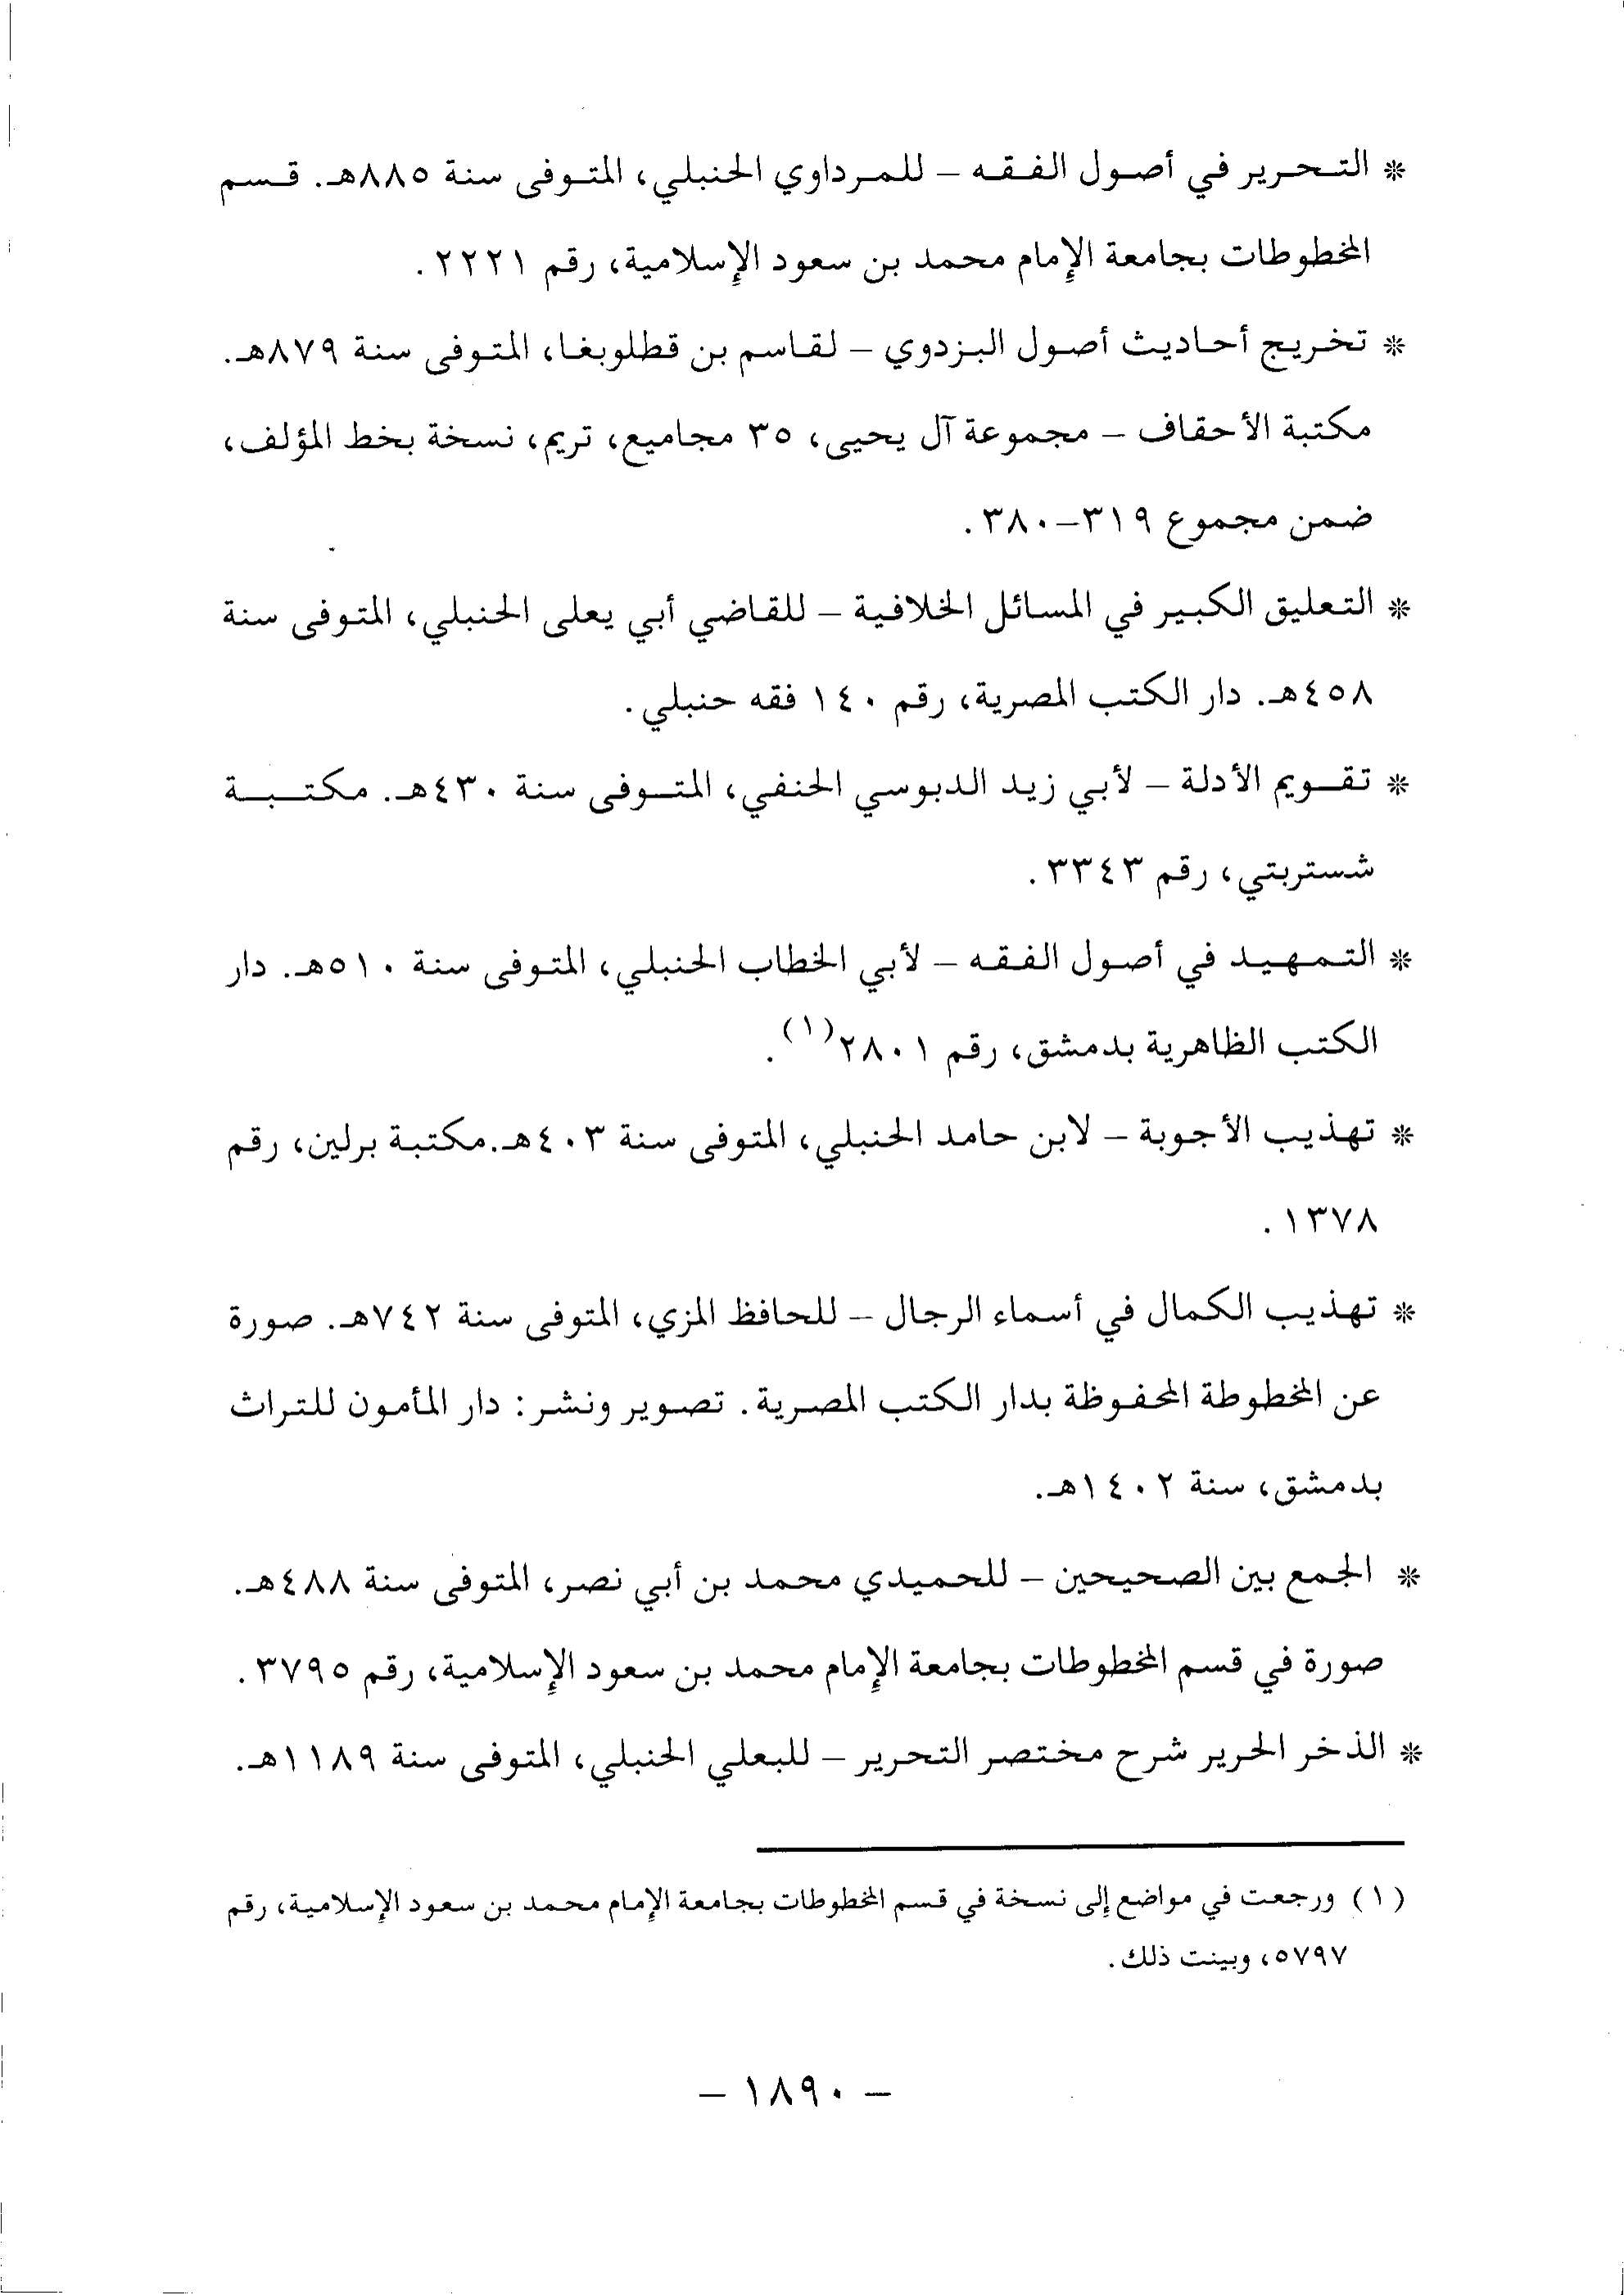 * التحرير في أصول الفقه – للمرداوي الحنبلي، المتوفى سنة ٨٨٥هـ. قسم
المخطوطات بجامعة الإمام محمد بن سعود الإسلامية، رقم ٢٢٢١.
* تخريج أحاديث أصول البزدوي – لقاسم بن قطلوبغا، المتوفى سنة ٨٧٩هـ.
مكتبة الأحقاف – مجموعة آل يحيى، ٣٥ مجاميع، تريم، نسخة بخط المؤلف،
ضمن مجموع ٣١٩–٣٨٠.
* التعليق الكبير في المسائل الخلافية – للقاضي أبي يعلى الحنبلي، المتوفى سنة
٤٥٨هـ. دار الكتب المصرية، رقم ١٤٠ فقه حنبلي.
* تقويم الأدلة – لأبي زيد الدبوسي الحنفي، المتوفى سنة ٤٣٠هـ. مكتبة
شستربتي، رقم ٣٣٤٣.
* التمهيد في أصول الفقه – لأبي الخطاب الحنبلي، المتوفى سنة ٥١٠هـ. دار
الكتب الظاهرية بدمشق، رقم ٢٨٠١(١).
* تهذيب الأجوبة – لابن حامد الحنبلي، المتوفى سنة ٤٠٣هـ.مكتبة برلين، رقم
١٣٧٨.
* تهذيب الكمال في أسماء الرجال – للحافظ المزي، المتوفى سنة ٧٤٢هـ. صورة
عن المخطوطة المحفوظة بدار الكتب المصرية. تصوير ونشر: دار المأمون للتراث
بدمشق، سنة ١٤٠٢هـ.
* الجمع بين الصحيحين – للحميدي محمد بن أبي نصر، المتوفى سنة ٤٨٨هـ.
صورة في قسم المخطوطات بجامعة الإمام محمد بن سعود الإسلامية، رقم ٣٧٩٥.
* الذخر الحرير شرح مختصر التحرير – للبعلي الحنبلي، المتوفى سنة ١١٨٩هـ.
(١) ورجعت في مواضع إلى نسخة في قسم المخطوطات بجامعة الإمام محمد بن سعود الإسلامية، رقم
٥٧٩٧، وبينت ذلك.
– ١٨٩٠ –